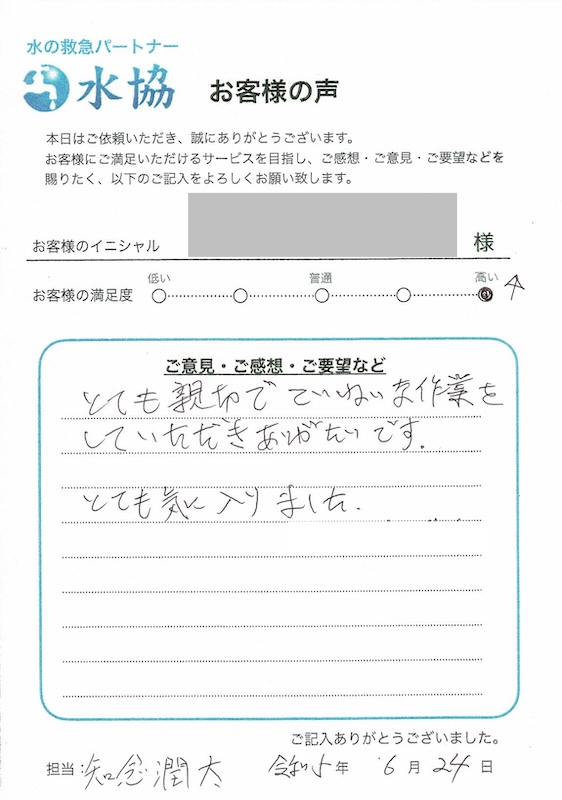 水の救急パートナー
水協 お客様の声
本日はご依頼いただき、誠にありがとうございます。
お客様にご満足いただけるサービスを目指し、ご感想・ご意見・ご要望などを
賜りたく、以下のご記入をよろしくお願い致します。
お客様のイニシャル 様
低い 普通 高い
お客様の満足度
ご意見・ご感想・ご要望など
とても親切でていねいな作業を
していただきありがたいです.
とても気に入りました.
ご記入ありがとうございました。
担当:知念潤太 令和5年 6月24日